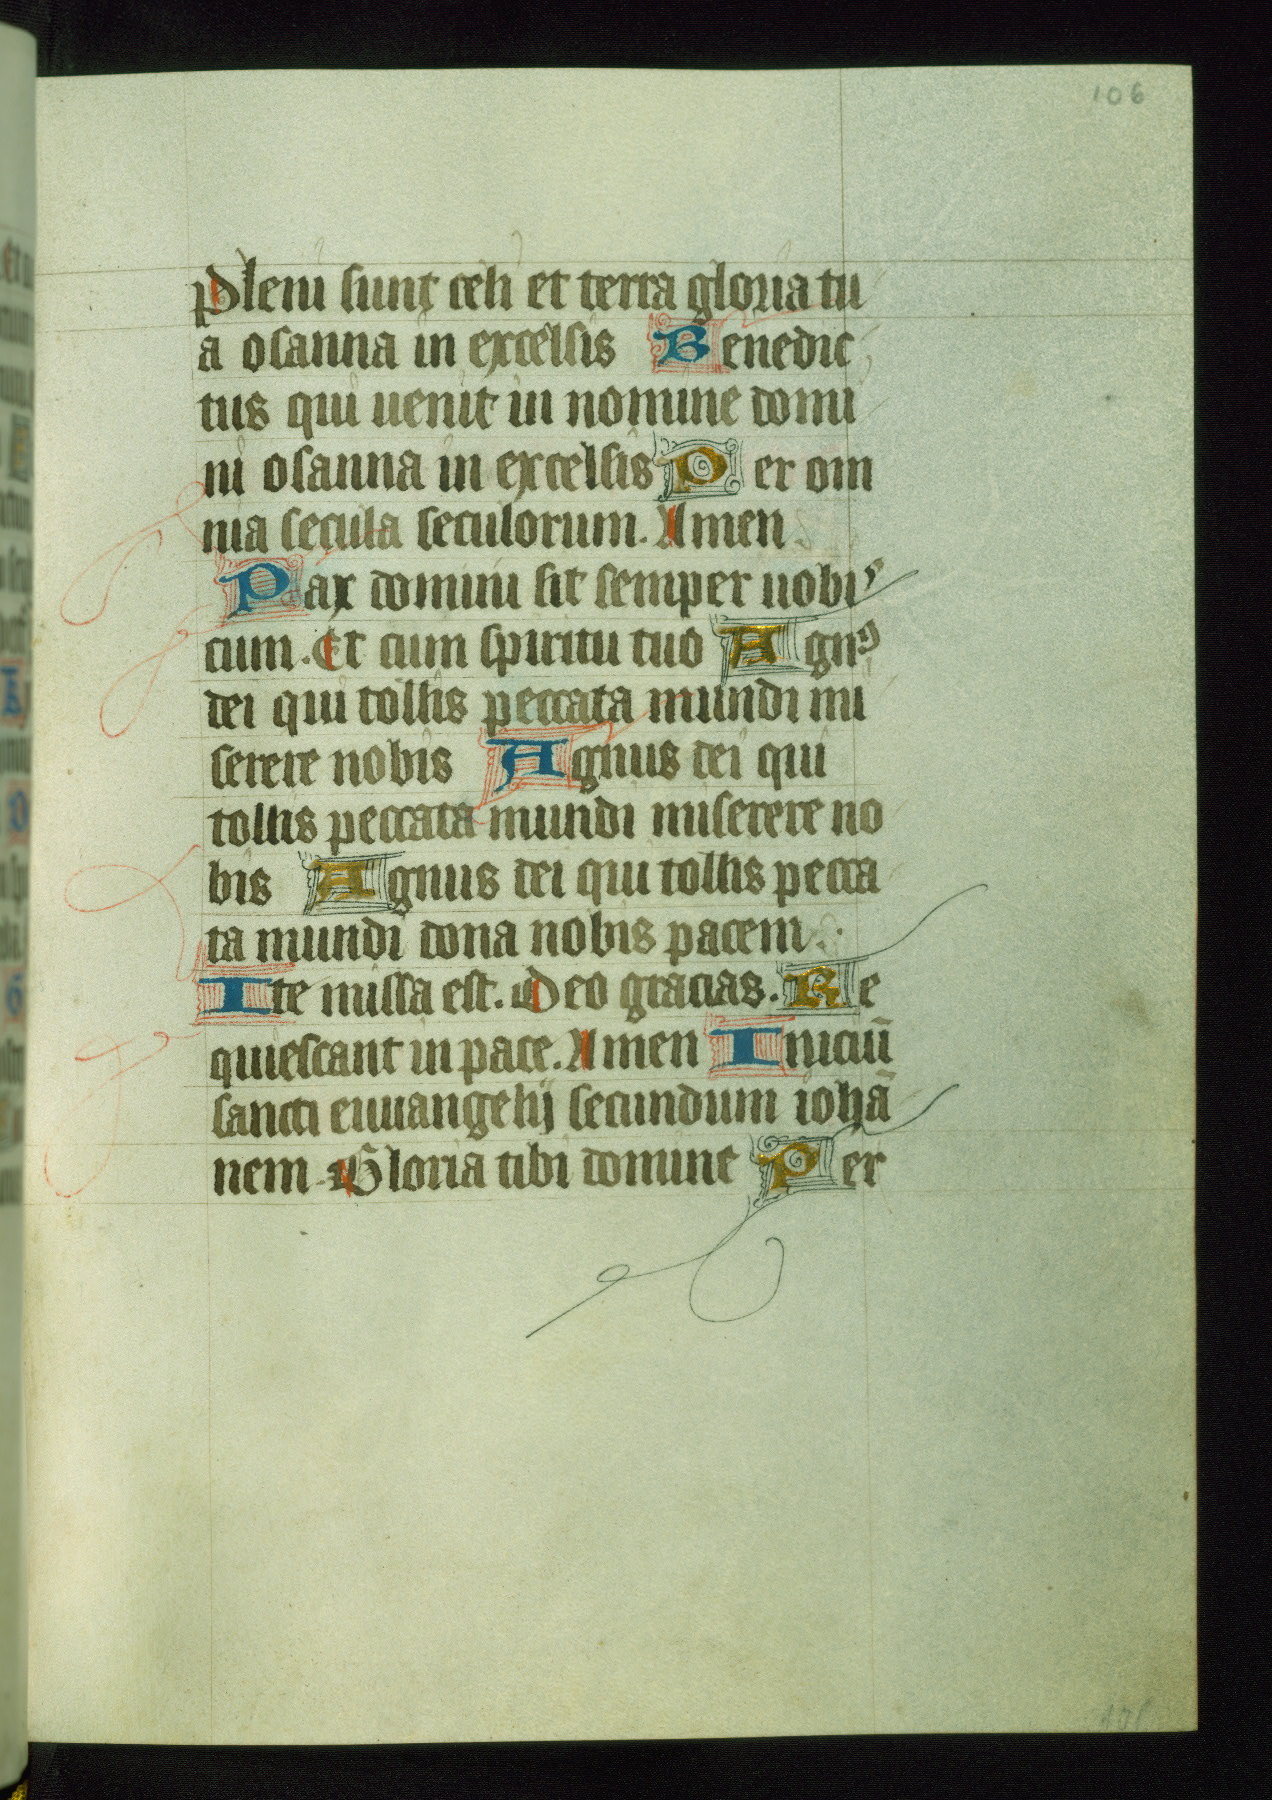 106
Pleni sunt celi et terra gloria tu
a osanna in excelsis Benedic
tus qui uenit in nomine domi
ni osanna in excelsis Per om
nia secula seculorum. Amen
Pax domini sit semper uobis
cum. Et cum spiritu tuo Agnꝰ
dei qui tollis peccata mundi mi
serere nobis Agnus dei qui
tollis peccata mundi miserere no
bis Agnus dei qui tollis pecca
ta mundi dona nobis pacem.
Ite missa est. Deo gracias. Re
quiescant in pace. Amen Iniciū
sancti euuangelij secundum iohā
nem. Gloria tibi domine Per